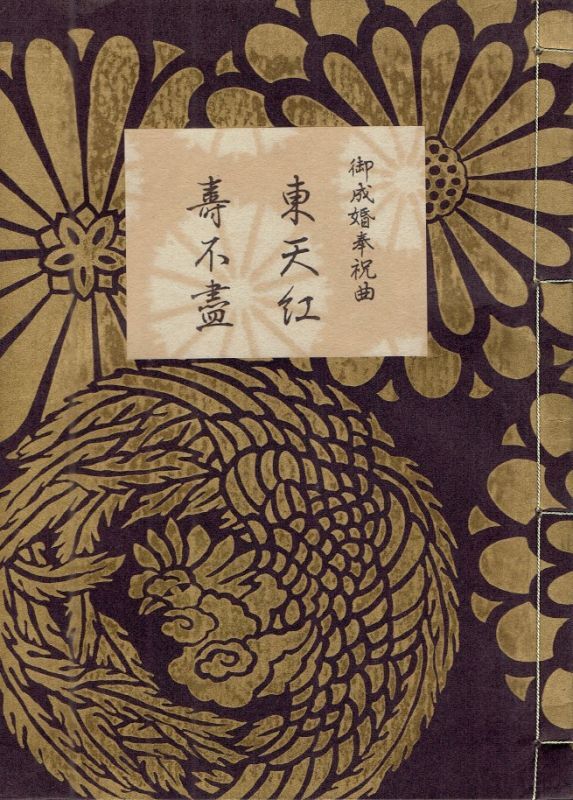 御成婚奉祝曲
東天紅
壽不盡